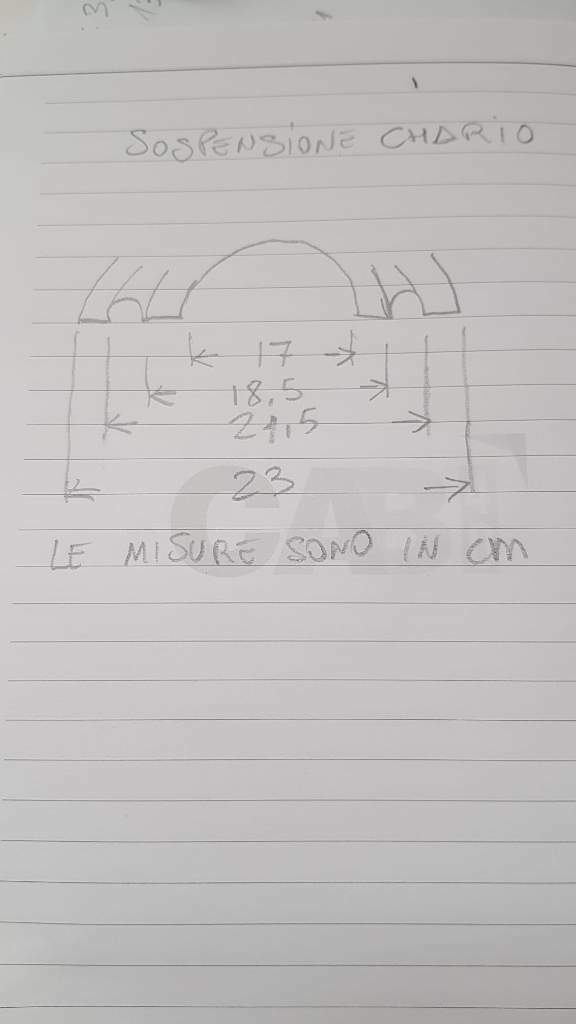 SOSPENSIONE CHARIO
17
18,5
21,5
23
LE MISURE SONO IN CM